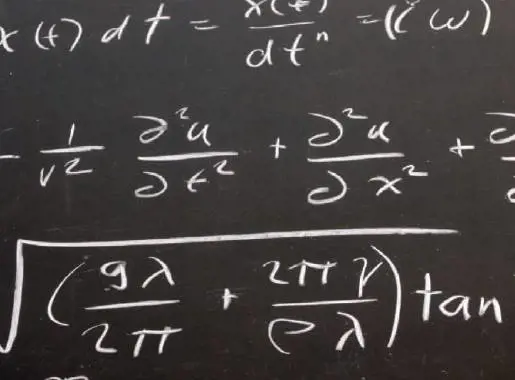 x(t) dt = x(t)/dtⁿ = (iω)
- 1/v² ∂²u/∂t² + ∂²u/∂x² + ∂
√(gλ/2π + 2πγ/ρλ) tan